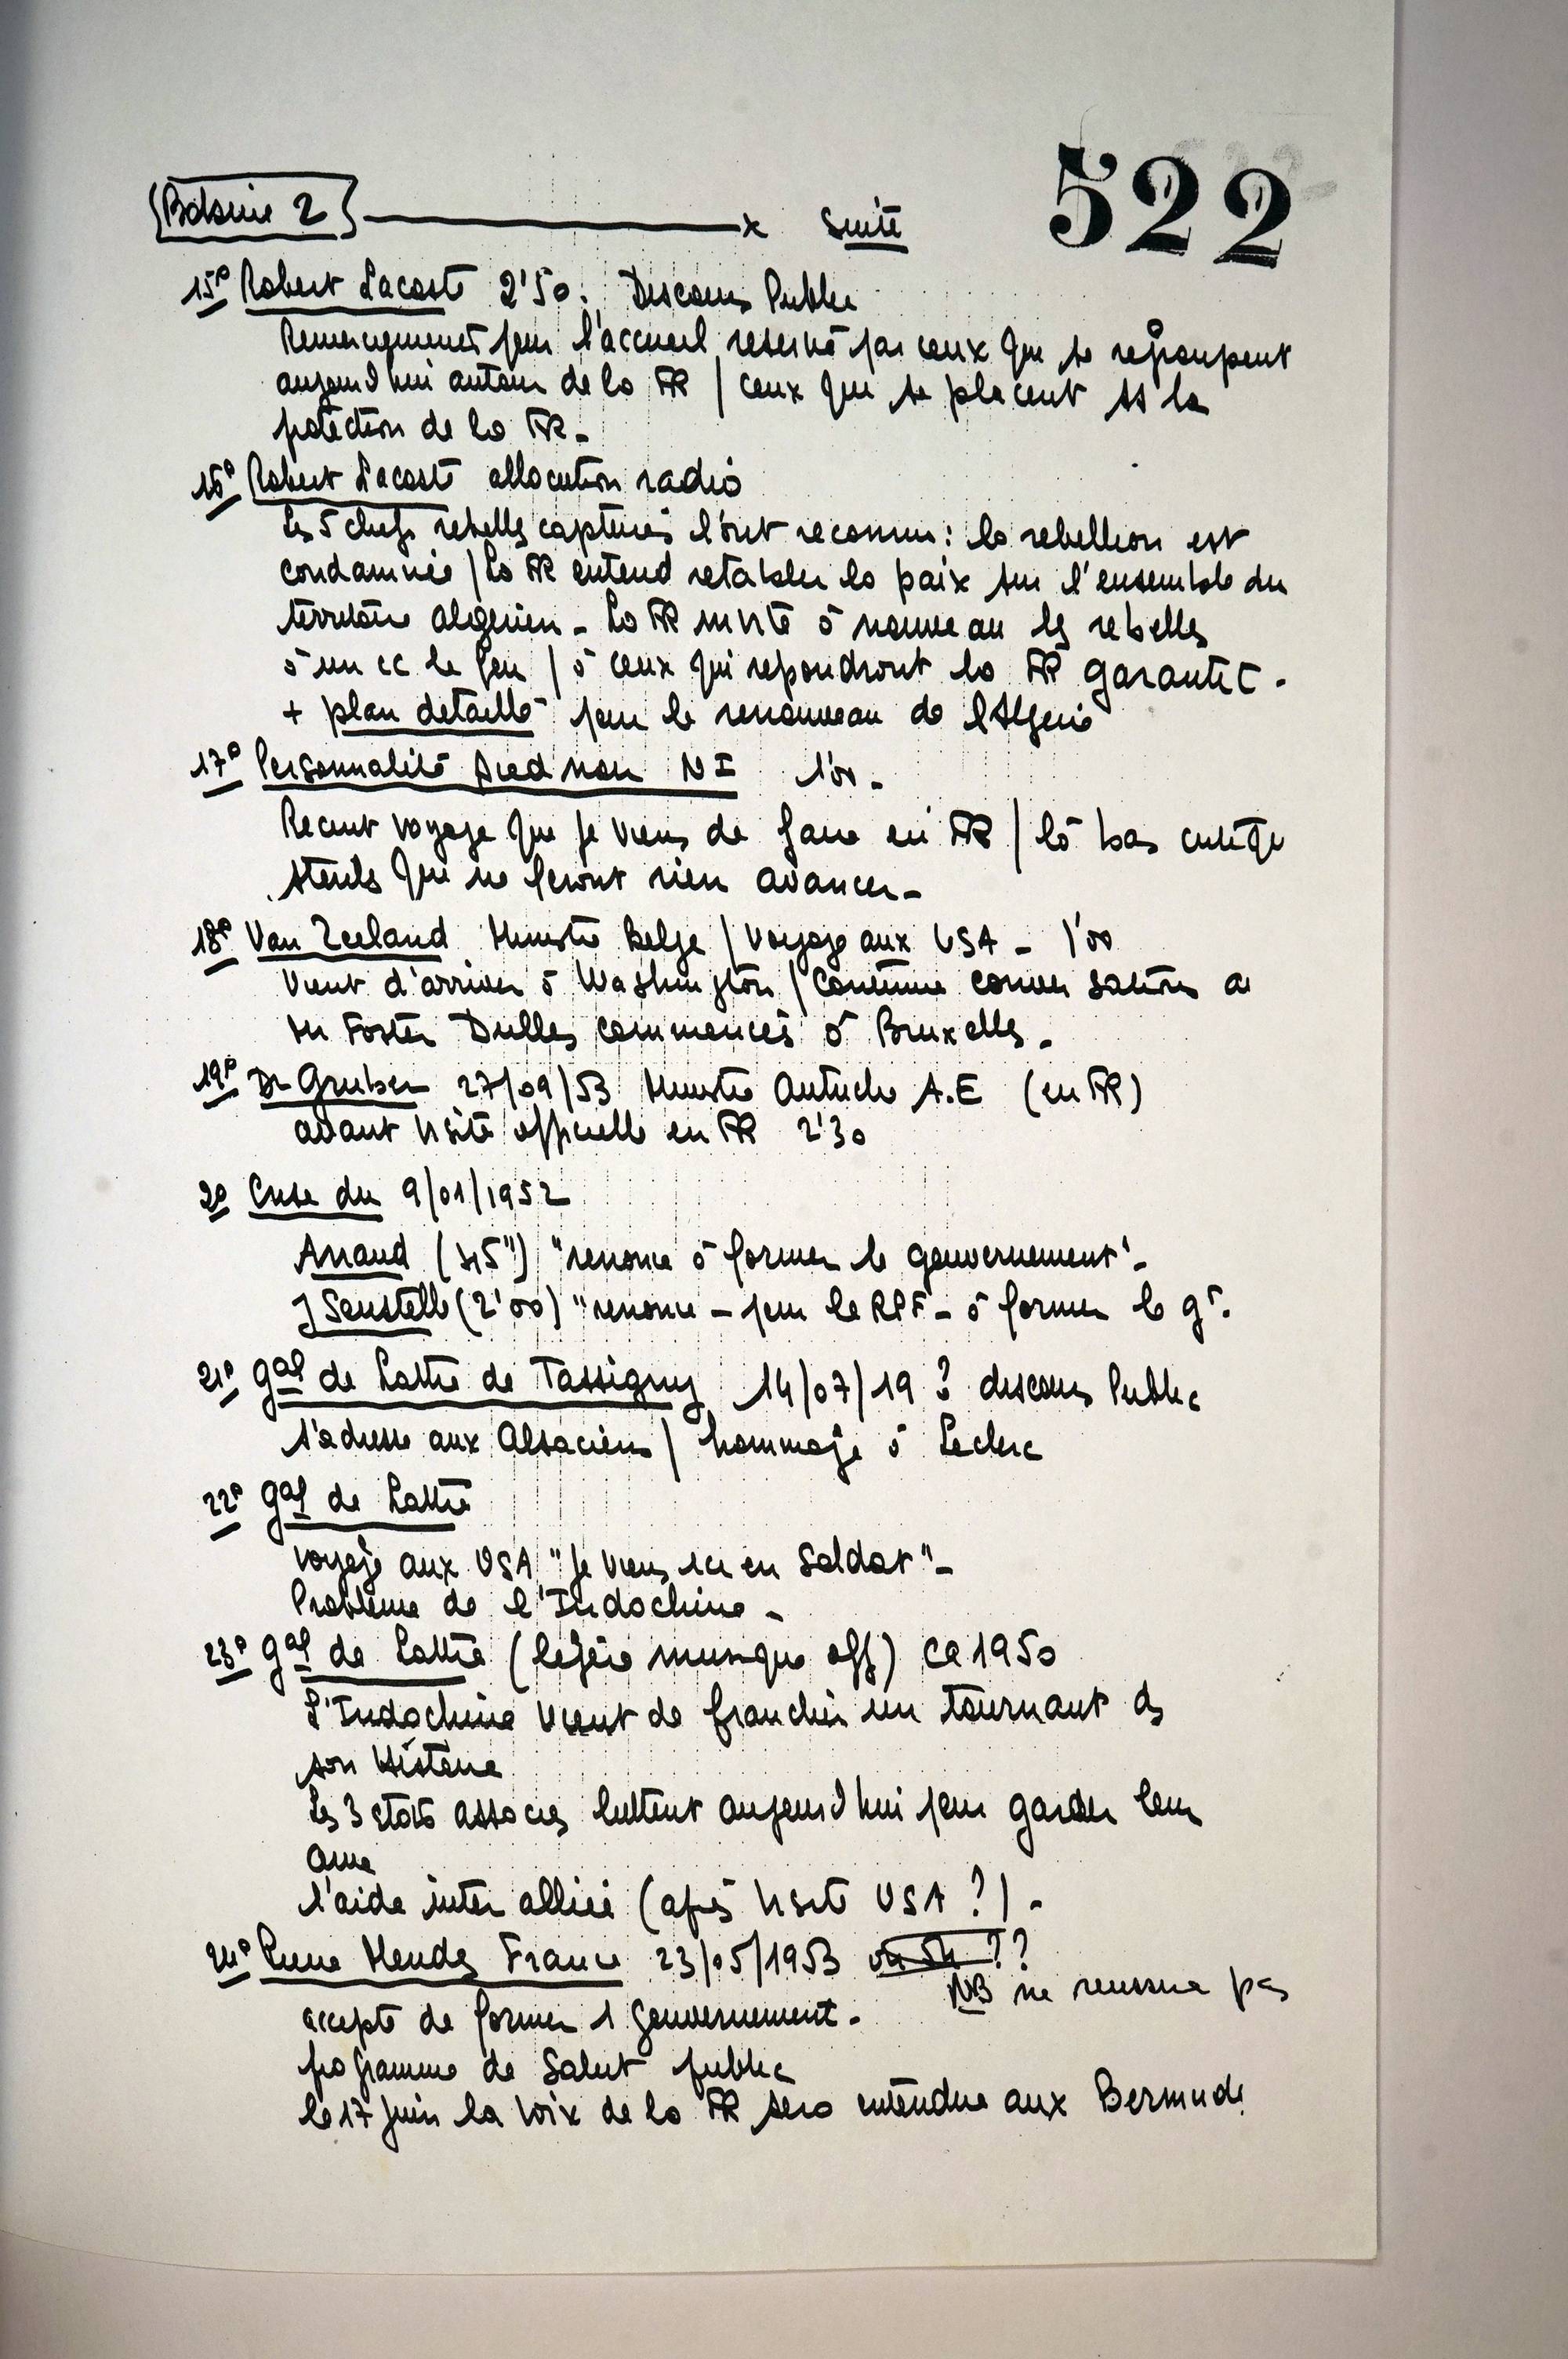 522
Bobinie 2 x Suite
15° Robert Lacoste 2'50. Discours Public
Remerciements pour l'accueil reservé par ceux qui se regroupent
aujourd'hui autour de la FR / ceux qui se placent ss la
protection de la FR.
16° Robert Lacoste allocution radio
les 5 chefs rebelles capturés l'ont reconnu : la rebellion est
condamnée / La FR entend retablir la paix sur l'ensemble du
territoire algerien - La FR invite à nouveau les rebelles
à un cc le feu / à ceux qui repondront la FR garantit -
+ plan detaillé pour le renouveau de l'Algerie
17° Personnalité NI 1'00 -
Recent voyage que je viens de faire en FR / là bas critiqu
steriles qui ne feront rien avancer -
18° Van Zeeland Ministre Belge / Voyage aux USA - 1'00
Vient d'arriver à Washington / Continue conversations a
Mr Foster Dulles commencés à Bruxelles.
19° Dr Gruber 27/09/53 Ministre Autriche A.E (en FR)
avant visite officielle en FR 2'30
20 Crise du 9/01/1952
(45") "renonce à former le gouvernement" -
J Soustelle (2'00) "renonce - pour le RPF - à former le gt.
21° gal de Lattre de Tassigny 14/07/19 ? discours Public
S'adresse aux Alsaciens / hommage à Leclerc
22° gal de Lattre
voyage aux USA "je viens ici en Soldat" -
Problème de l'Indochine -
23° gal de Lattre (legère musique off) ca 1950
L'Indochine vient de franchir un tournant ds
son Histoire
les 3 etats associes luttent aujourd'hui pour garder leur
ame
l'aide inter alliée (après visite USA ?) -
24° Pierre Mendes France 23/05/1953 ou 54 ??
NB ne reussira pas
accepte de former 1 gouvernement -
programme de Salut public
le 17 juin la voix de la FR sera entendue aux Bermude